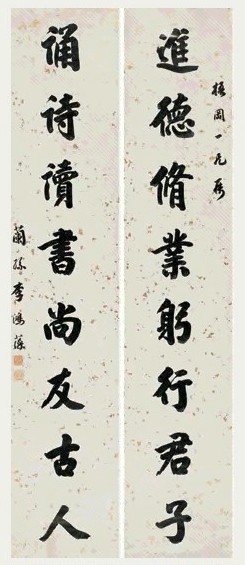 岡一兄屬
進德脩業躬行君子
誦詩讀書尚友古人
蘭孫李鴻藻